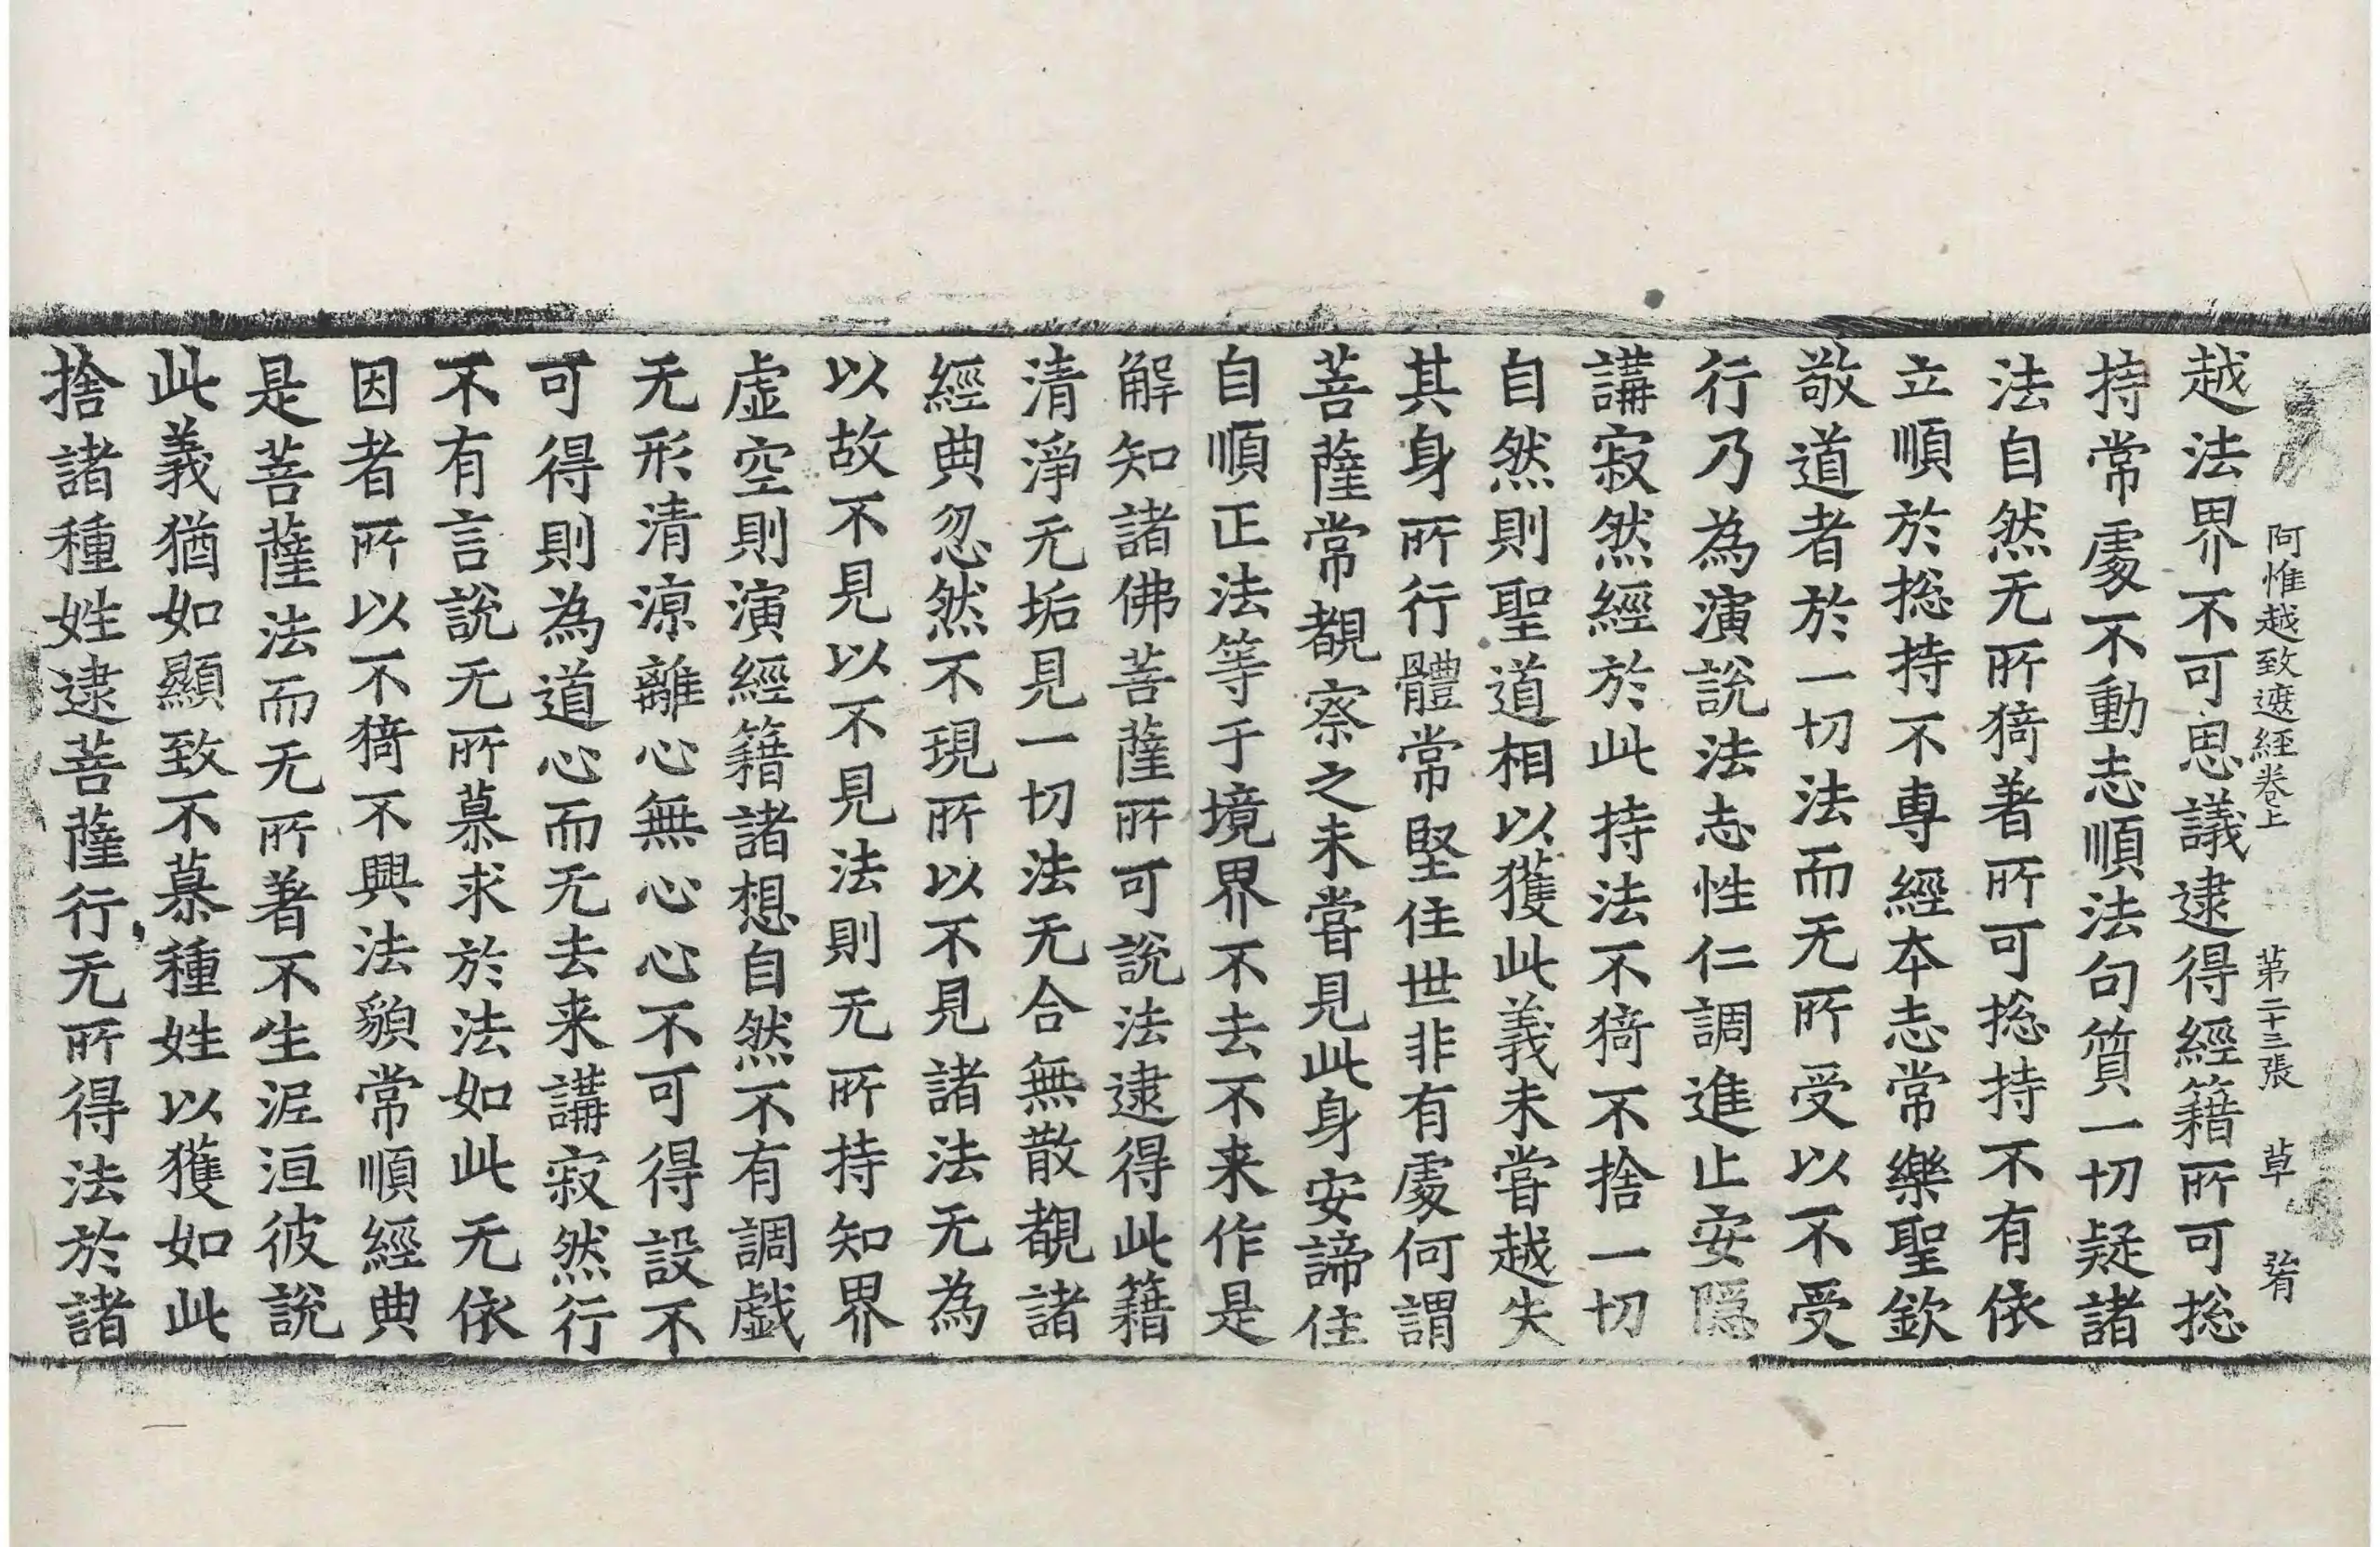 阿惟越致遮経卷上 第二十三張 草
越法界不可思議逮得經籍所可捴
持常䖏不動志順法句質一切疑諸
法自然无所猗著所可捴持不有依
立順於捴持不専經夲志常樂聖欽
敬道者於一切法而无所受以不受
行乃為演說法志性仁調進止安隠
講寂然經於此持法不猗不捨一切
自然則聖道相以獲此義未甞越失
其身所行體常堅住世非有䖏何謂
菩薩常覩察之未甞見此身安諦住
自順正法等于境界不去不来作是
解知諸佛菩薩所可說法逮得此籍
清淨无垢見一切法无合無散覩諸
經典忽然不現所以不見諸法无為
以故不見以不見法則无所持知界
虛空則演經籍諸想自然不有調戯
无形清涼離心無心心不可得設不
可得則為道心而无去来講寂然行
不有言說无所慕求於法如此无依
因者所以不猗不興法貌常順經典
是菩薩法而无所著不生泥洹彼說
此義猶如顯致不慕種姓以獲如此
捨諸種姓逮菩薩行无所得法於諸